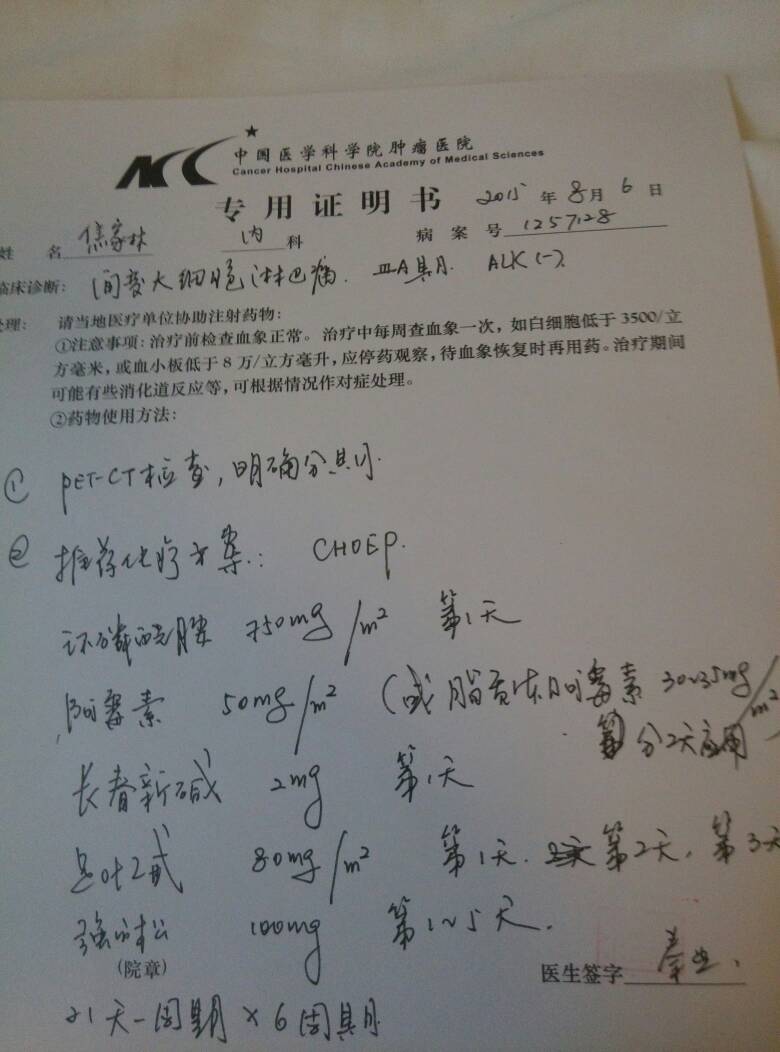 中国医学科学院肿瘤医院
Cancer Hospital Chinese Academy of Medical Sciences
专用证明书 2015年8月6日
姓名 焦家林 内科 病案号 1257128
临床诊断: 间变大细胞淋巴瘤. ⅢA期. ALK(-).
处理: 请当地医疗单位协助注射药物:
①注意事项: 治疗前检查血象正常。治疗中每周查血象一次，如白细胞低于 3500/立
方毫米，或血小板低于 8 万/立方毫升，应停药观察，待血象恢复时再用药。治疗期间
可能有些消化道反应等，可根据情况作对症处理。
②药物使用方法:
① PET-CT检查, 明确分期.
② 推荐化疗方案: CHOEP.
环磷酰胺 750mg/m² 第1天
阿霉素 50mg/m² (或脂质体阿霉素 30~35mg/m²
分2天应用
长春新碱 2mg 第1天
足叶乙甙 80mg/m² 第1天. 第2天. 第3天
强的松 100mg 第1~5天.
(院章) 医生签字
21天一周期 × 6周期